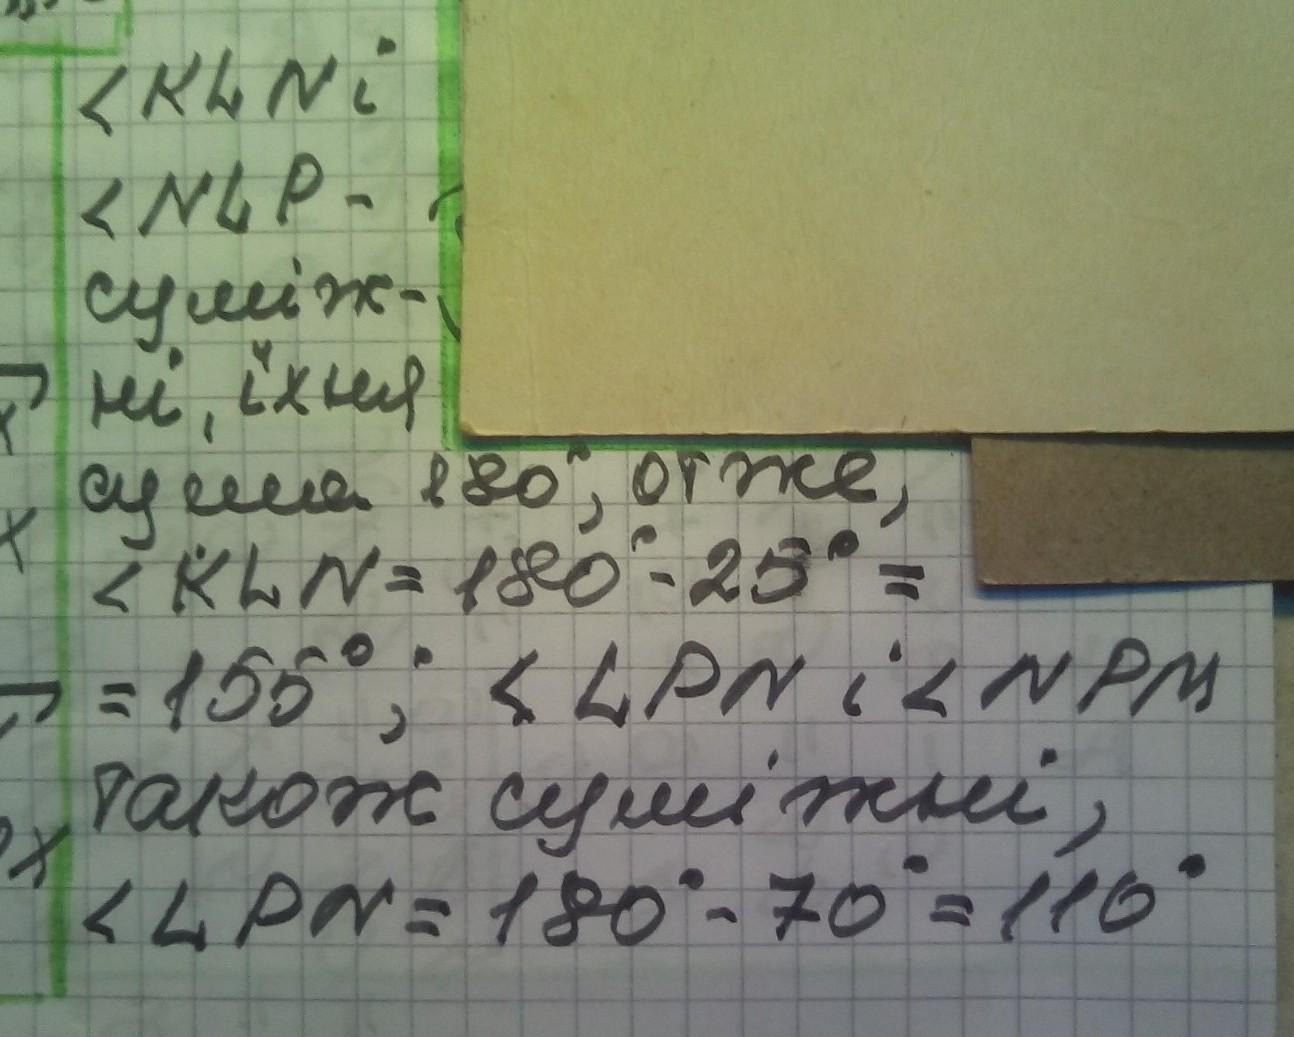 <KLN і
<NLP -
суміж-
ні, їхня
сума 180°, отже,
<KLN = 180° - 25° =
= 155°; <LPN і <NPM
також суміжні,
<LPN = 180° - 70° = 110°